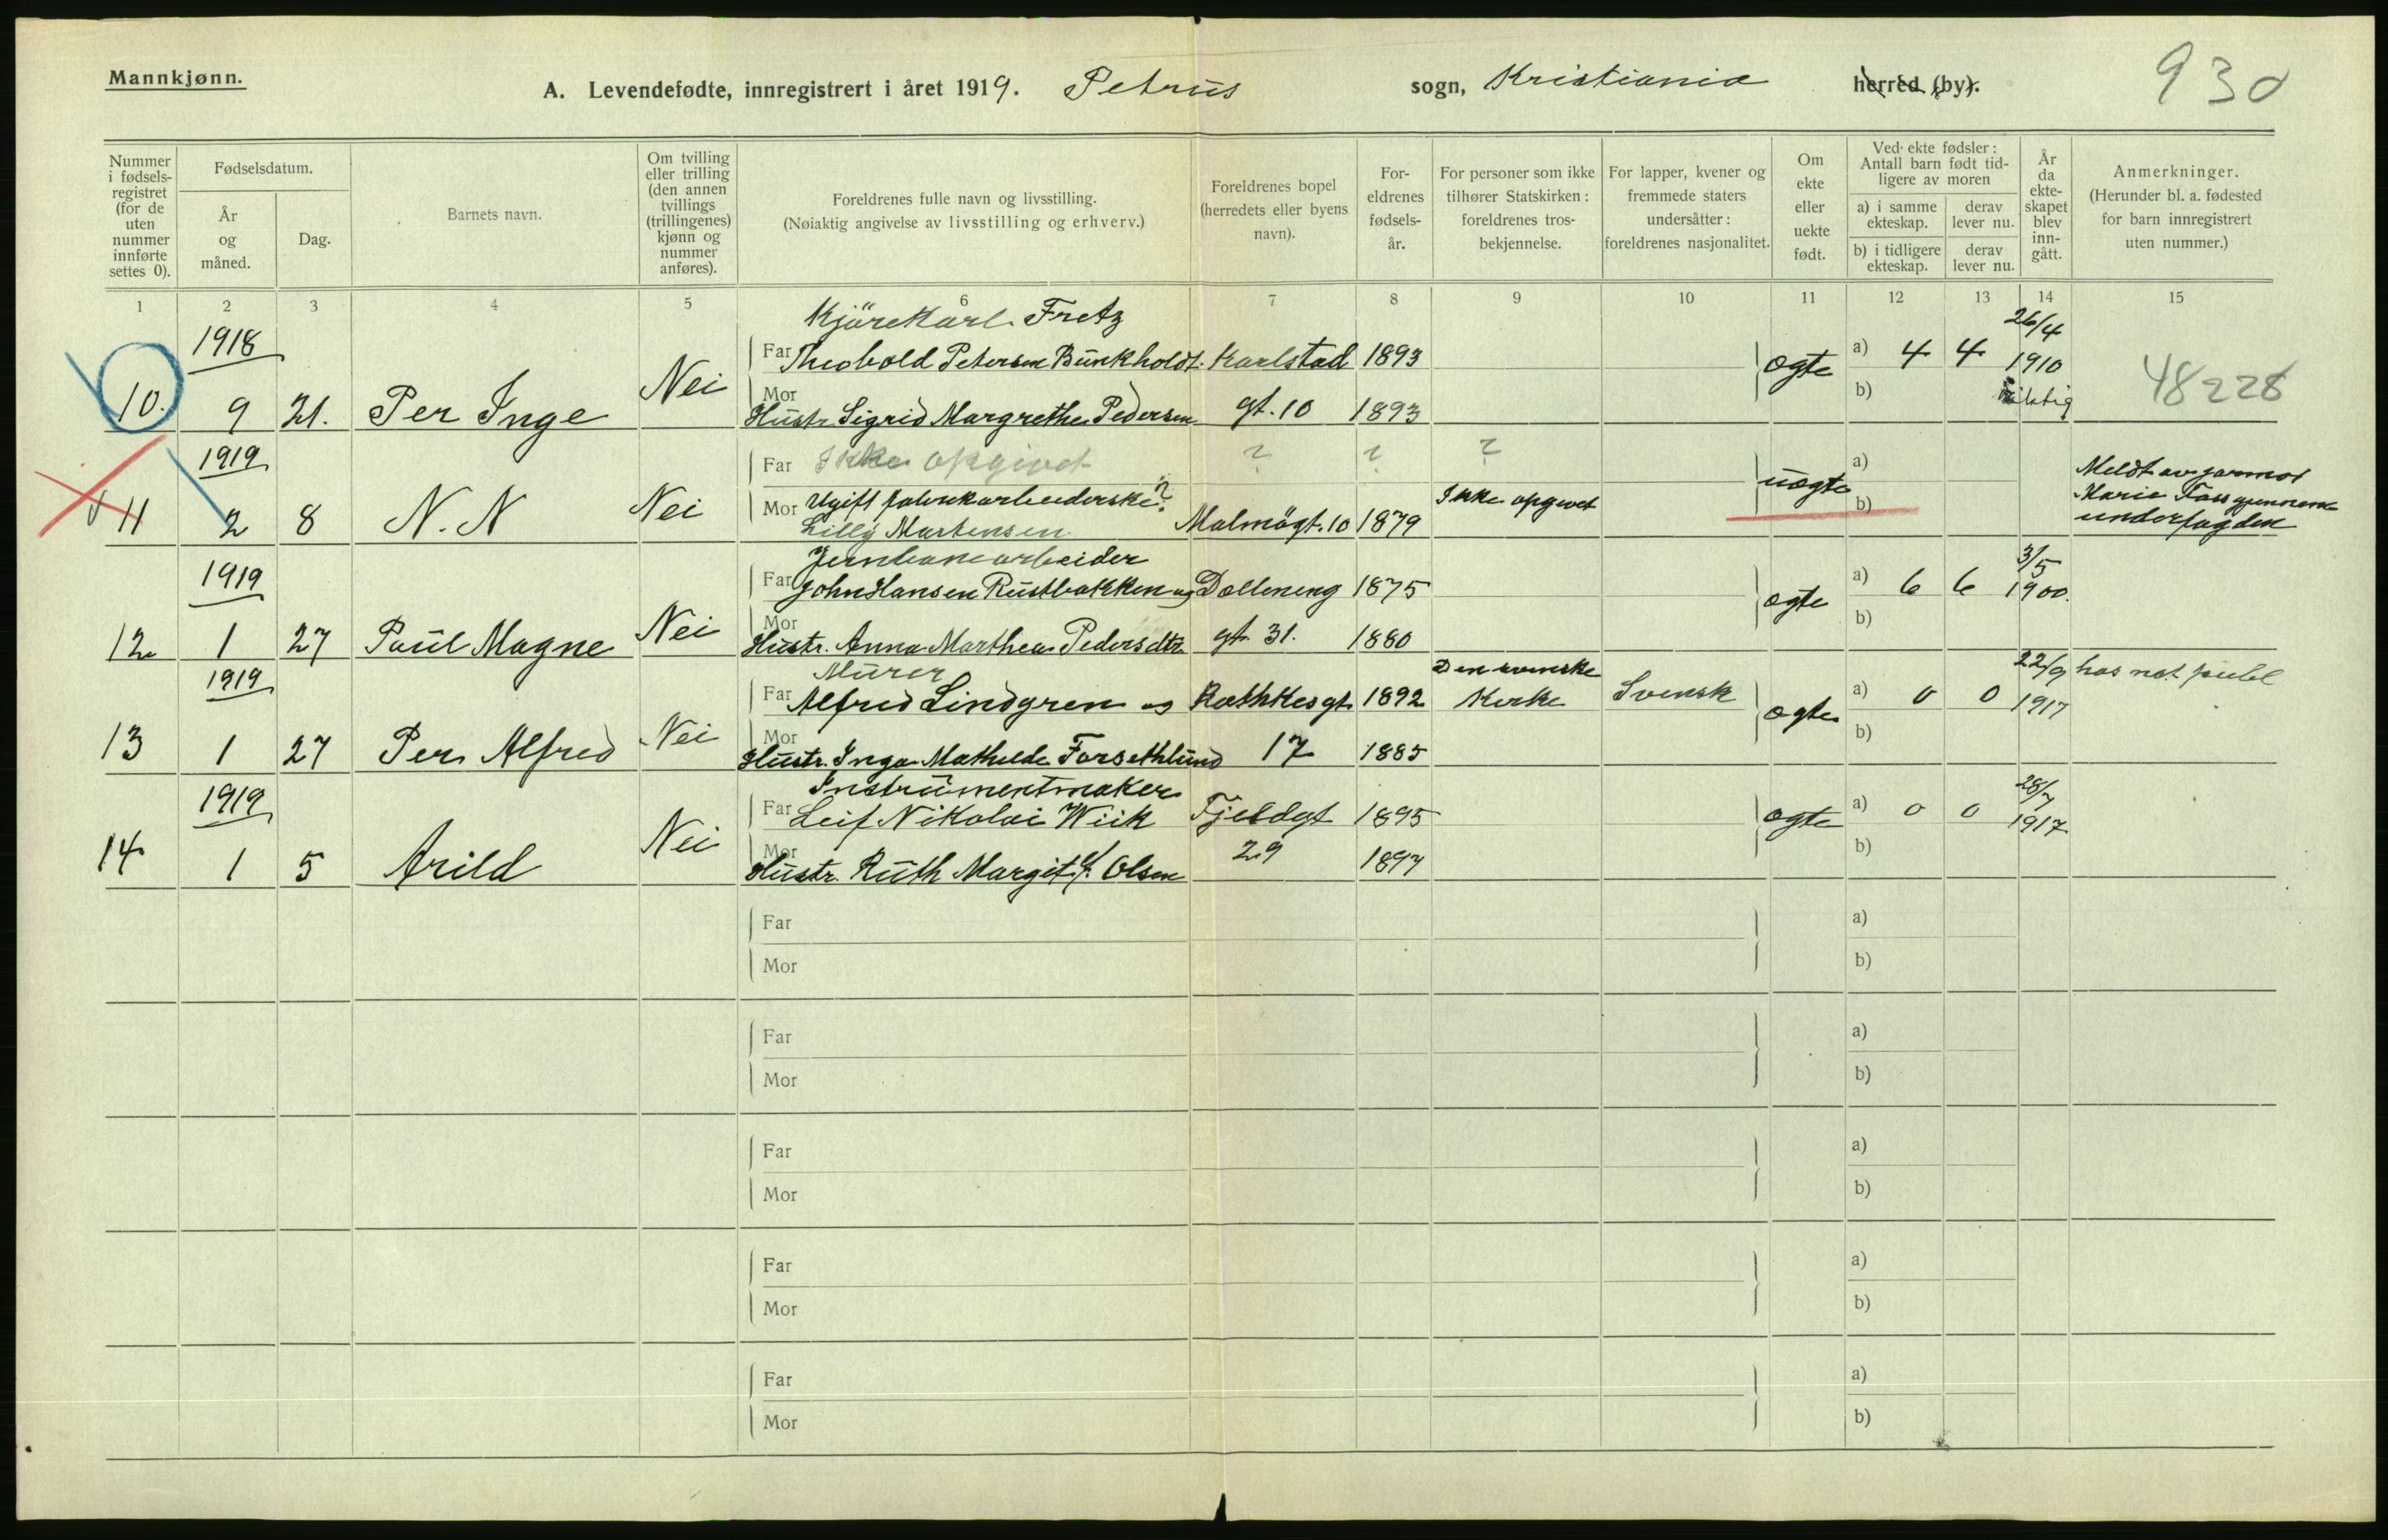 Mannkjønn.
A. Levendefødte, innregistrert i året 1919. Petrus sogn, Kristiania herred (by).
930
Nummer i fødsels-registret (for de uten nummer innførte settes 0).
Fødselsdatum.
År og måned.
Dag.
Barnets navn.
Om tvilling eller trilling (den annen tvillings (trillingenes) kjønn og nummer anføres).
Foreldrenes fulle navn og livsstilling.
(Nøiaktig angivelse av livsstilling og erhverv.)
Foreldrenes bopel (herredets eller byens navn).
For-eldrenes fødsels-år.
For personer som ikke tilhører Statskirken: foreldrenes tros-bekjennelse.
For lapper, kvener og fremmede staters undersåtter: foreldrenes nasjonalitet.
Om ekte eller uekte født.
Ved ekte fødsler: Antall barn født tid-ligere av moren
a) i samme ekteskap.
derav lever nu.
b) i tidligere ekteskap.
derav lever nu.
År da ekte-skapet blev inn-gått.
Anmerkninger.
(Herunder bl. a. fødested for barn innregistrert uten nummer.)
1 2 3 4 5 6 7 8 9 10 11 12 13 14 15
Kjörekarl Fretz 26/4
1918 Far Theobold Petersen Bunkholdt Karlstad 1893 a) 4 4 1910
10. 9 21. Per Inge Nei Mor Hustr. Sigrid Margrethe Pedersen gt. 10 1893 ægte b) riktig 48228
1919 Far Ikke opgivet ? ? ? a)
11 2 8 N. N Nei Mor Ugift fabrikarbeiderske? Lilly Martensen Malmögt. 10 1879 Ikke opgivet uægte b)
Meldt av jormor
Marie Foss gjennem
Jernbanearbeider 3/5
1919 Far John Hansen Rustbakken og Dælleneng 1875 a) 6 6 1900.
12 1 27 Paul Magne Nei Mor Hustr. Anna Marthea Pedersdtr. gt. 31. 1880 ægte b)
Murer Den svenske 22/9
1919 Far Alfred Lindgren og Rathkesgt 1892 Kirke Svensk a) 0 0 1917
13 1 27 Per Alfred Nei Mor Hustr. Inga Mathilde Forsethlund 17 1885 ægte b)
Instrumentmaker 28/7
1919 Far Leif Nikolai Wiik Fjeldgt 1895 a) 0 0 1917
14 1 5 Arild Nei Mor Hustr. Ruth Margit f. Olsen 29 1897 ægte b)
Far a)
Mor b)
Far a)
Mor b)
Far a)
Mor b)
Far a)
Mor b)
Far a)
Mor b)